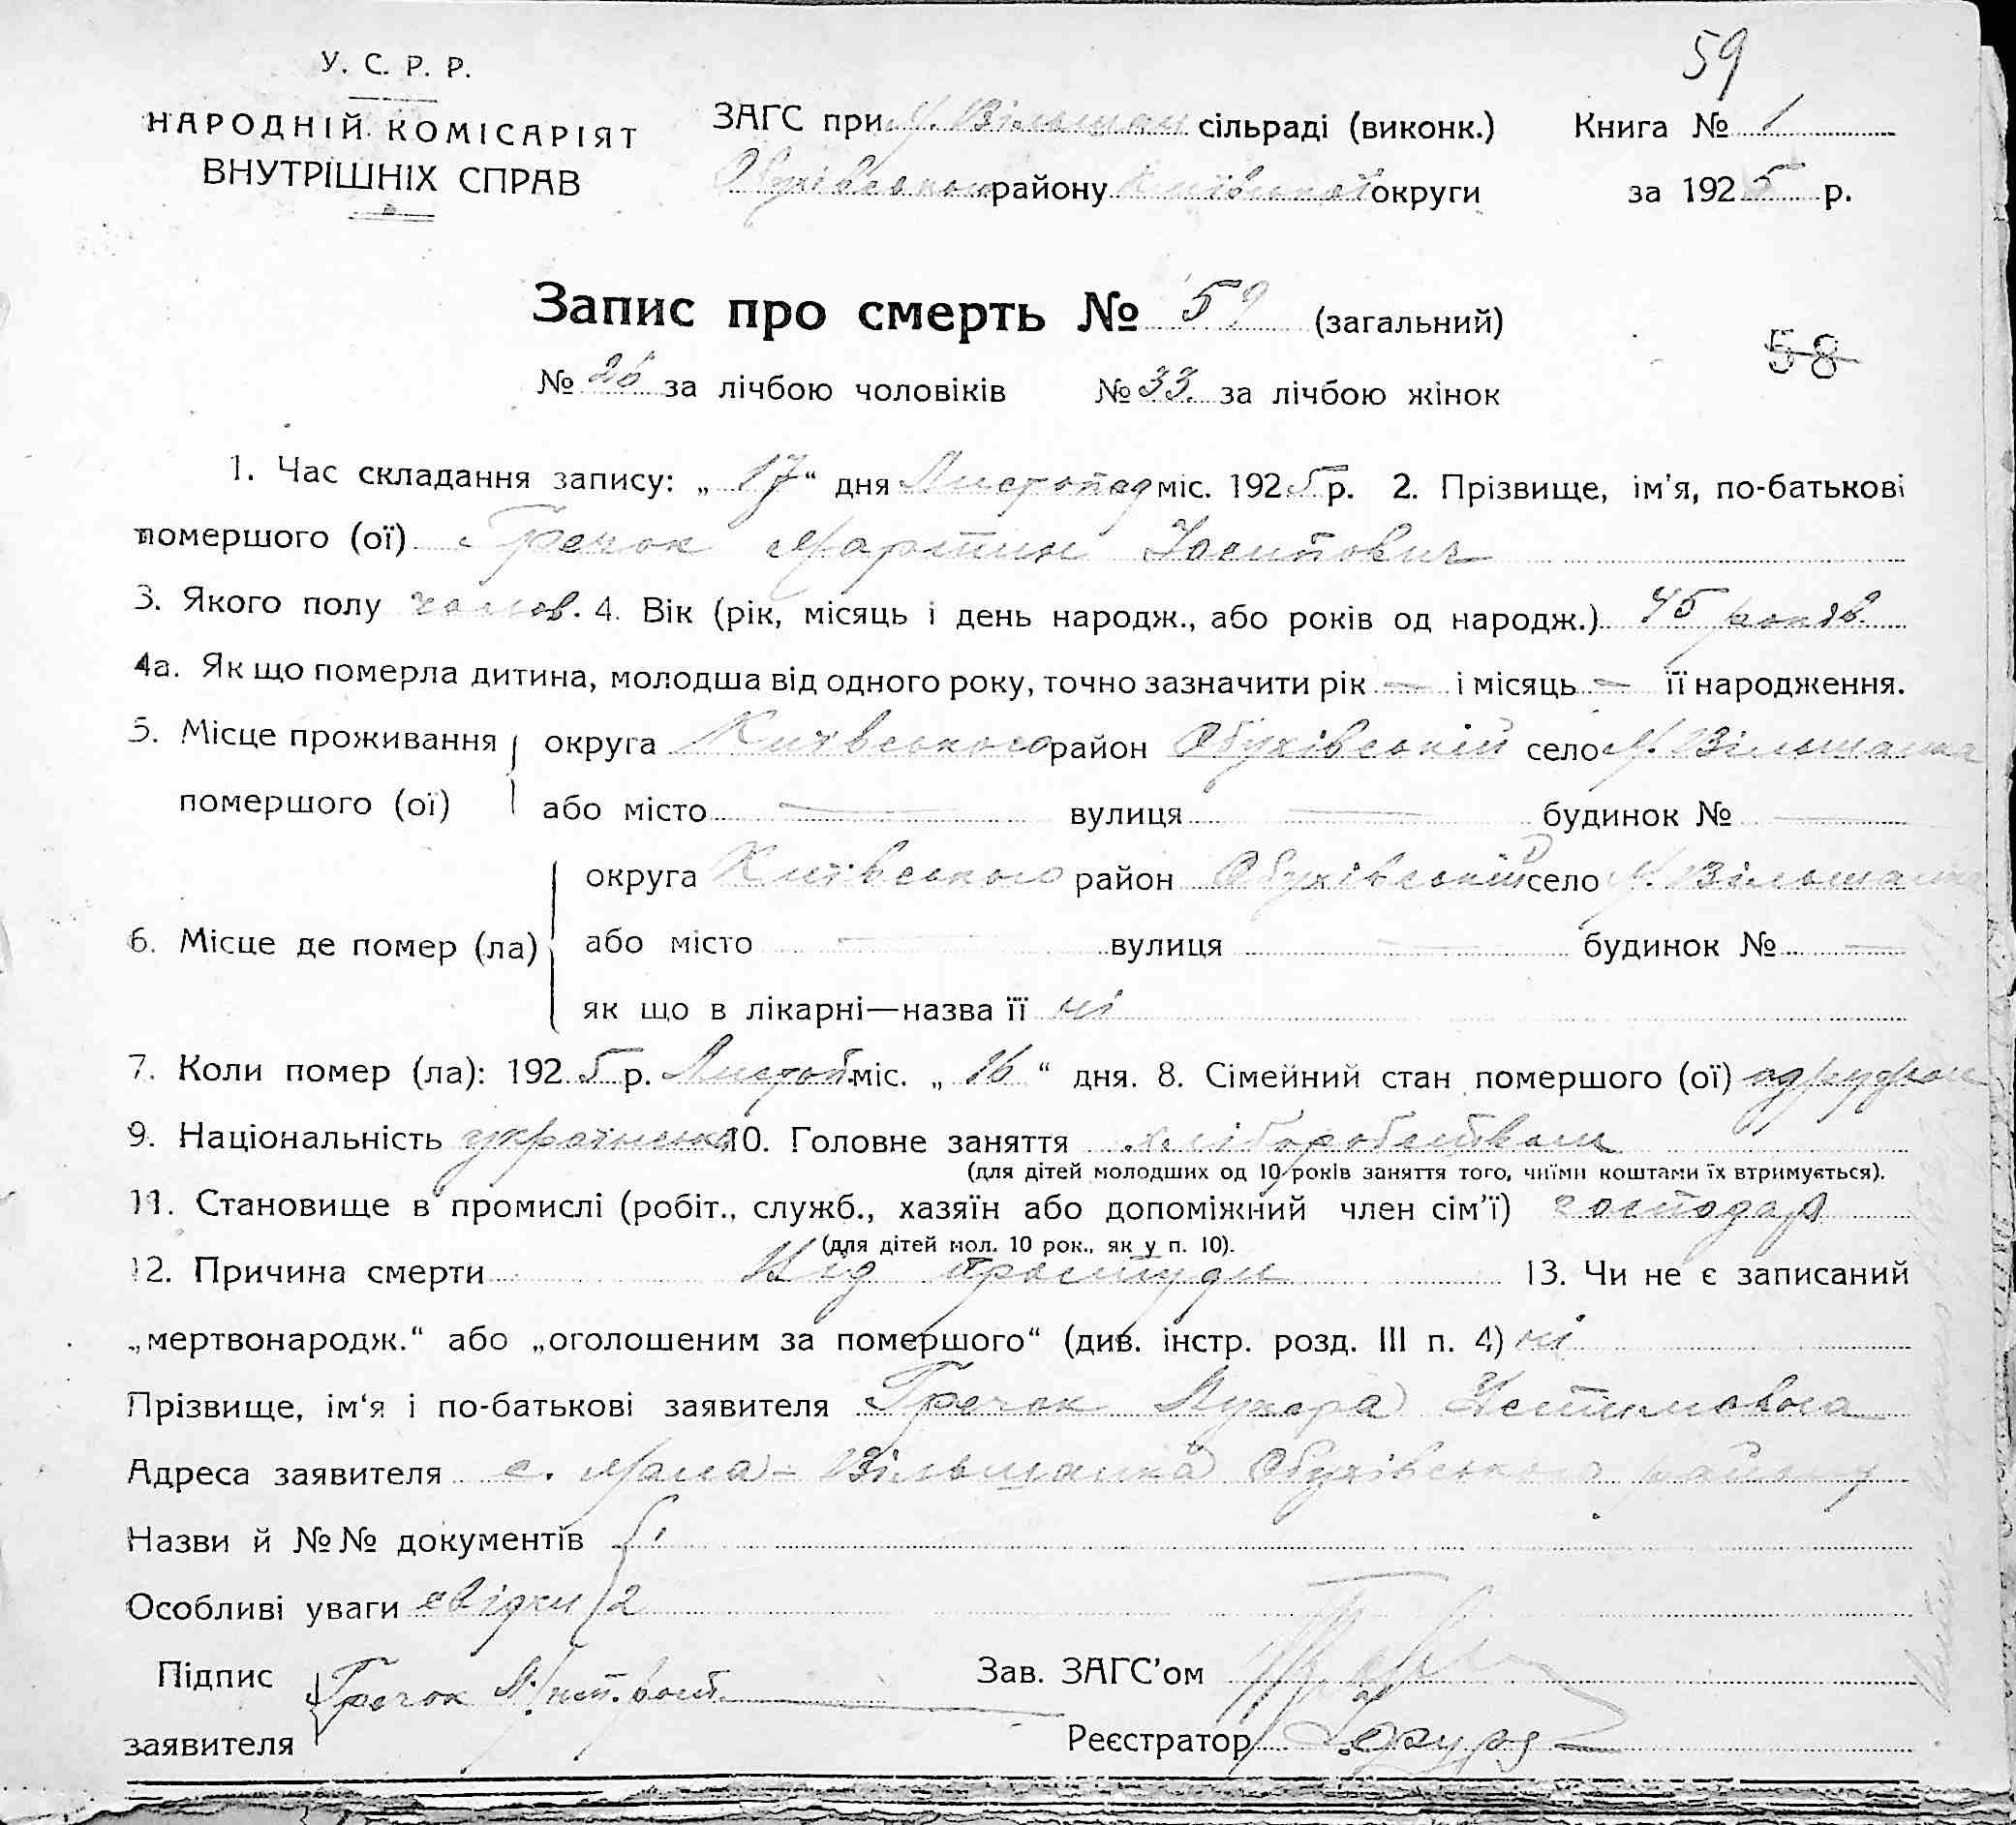 59
У. С. Р. Р.
НАРОДНІЙ КОМІСАРІЯТ
ВНУТРІШНІХ СПРАВ
ЗАГС при М. Вільшан сільраді (виконк.) Книга № 1
Обухівського району Київської округи за 1925 р.
Запис про смерть № 59 (загальний)
58
№ 26 за лічбою чоловіків № 33 за лічбою жінок
1. Час складання запису: „ 17 “ дня Листопад міс. 1925 р. 2. Прізвище, ім'я, по-батькові
помершого (ої) Гречок Мартин Йосипович
3. Якого полу чолов. 4. Вік (рік, місяць і день народж., або років од народж.) 45 років
4а. Як що померла дитина, молодша від одного року, точно зазначити рік — і місяць — її народження.
5. Місце проживання округа Київського район Обухівський село М. Вільшанка
помершого (ої) або місто — вулиця — будинок № —
округа Київського район Обухівський село М. Вільшанка
6. Місце де помер (ла) або місто — вулиця — будинок № —
як що в лікарні—назва її ні
7. Коли помер (ла): 1925 р. Листоп. міс. „ 16 “ дня. 8. Сімейний стан помершого (ої)
9. Національність 10. Головне заняття хліборобством
(для дітей молодших од 10 років заняття того, чиїми коштами їх втримується).
11. Становище в промислі (робіт., служб., хазяїн або допоміжний член сім'ї) господар
(для дітей мол. 10 рок., як у п. 10).
12. Причина смерти Від простуди 13. Чи не є записаний
„мертвонародж.“ або „оголошеним за помершого“ (див. інстр. розд. III п. 4) ні
Прізвище, ім'я і по-батькові заявителя Гречок
Адреса заявителя с. Мала-Вільшанка Обухівського району
Назви й №№ документів
Особливі уваги свідки 2
Підпис Гречок Зав. ЗАГС'ом
заявителя Реєстратор